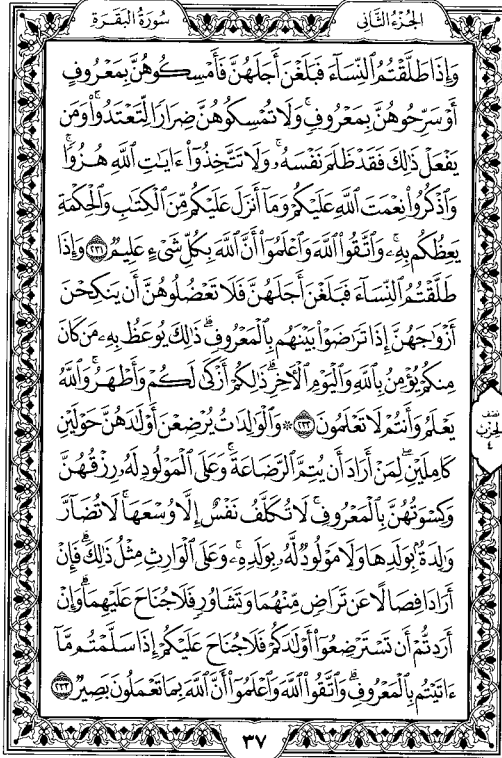 الجزء الثاني
سورة البقرة
وَإِذَا طَلَّقْتُمُ ٱلنِّسَآءَ فَبَلَغْنَ أَجَلَهُنَّ فَأَمْسِكُوهُنَّ بِمَعْرُوفٍ
أَوْ سَرِّحُوهُنَّ بِمَعْرُوفٍ ۚ وَلَا تُمْسِكُوهُنَّ ضِرَارًا لِّتَعْتَدُوا۟ ۚ وَمَن
يَفْعَلْ ذَٰلِكَ فَقَدْ ظَلَمَ نَفْسَهُۥ ۚ وَلَا تَتَّخِذُوٓا۟ ءَايَٰتِ ٱللَّهِ هُزُوًا ۚ
وَٱذْكُرُوا۟ نِعْمَتَ ٱللَّهِ عَلَيْكُمْ وَمَآ أَنزَلَ عَلَيْكُم مِّنَ ٱلْكِتَٰبِ وَٱلْحِكْمَةِ
يَعِظُكُم بِهِۦ ۚ وَٱتَّقُوا۟ ٱللَّهَ وَٱعْلَمُوٓا۟ أَنَّ ٱللَّهَ بِكُلِّ شَىْءٍ عَلِيمٌ ٢٣١ وَإِذَا
طَلَّقْتُمُ ٱلنِّسَآءَ فَبَلَغْنَ أَجَلَهُنَّ فَلَا تَعْضُلُوهُنَّ أَن يَنكِحْنَ
أَزْوَٰجَهُنَّ إِذَا تَرَٰضَوْا۟ بَيْنَهُم بِٱلْمَعْرُوفِ ۗ ذَٰلِكَ يُوعَظُ بِهِۦ مَن كَانَ
مِنكُمْ يُؤْمِنُ بِٱللَّهِ وَٱلْيَوْمِ ٱلْءَاخِرِ ۗ ذَٰلِكُمْ أَزْكَىٰ لَكُمْ وَأَطْهَرُ ۗ وَٱللَّهُ
يَعْلَمُ وَأَنتُمْ لَا تَعْلَمُونَ ٢٣٢ ۞ وَٱلْوَٰلِدَٰتُ يُرْضِعْنَ أَوْلَٰدَهُنَّ حَوْلَيْنِ
كَامِلَيْنِ ۖ لِمَنْ أَرَادَ أَن يُتِمَّ ٱلرَّضَاعَةَ ۚ وَعَلَى ٱلْمَوْلُودِ لَهُۥ رِزْقُهُنَّ
وَكِسْوَتُهُنَّ بِٱلْمَعْرُوفِ ۚ لَا تُكَلَّفُ نَفْسٌ إِلَّا وُسْعَهَا ۚ لَا تُضَآرَّ
وَٰلِدَةٌۢ بِوَلَدِهَا وَلَا مَوْلُودٌ لَّهُۥ بِوَلَدِهِۦ ۚ وَعَلَى ٱلْوَارِثِ مِثْلُ ذَٰلِكَ ۗ فَإِنْ
أَرَادَا فِصَالًا عَن تَرَاضٍ مِّنْهُمَا وَتَشَاوُرٍ فَلَا جُنَاحَ عَلَيْهِمَا ۗ وَإِنْ
أَرَدتُّمْ أَن تَسْتَرْضِعُوٓا۟ أَوْلَٰدَكُمْ فَلَا جُنَاحَ عَلَيْكُمْ إِذَا سَلَّمْتُم مَّآ
ءَاتَيْتُم بِٱلْمَعْرُوفِ ۗ وَٱتَّقُوا۟ ٱللَّهَ وَٱعْلَمُوٓا۟ أَنَّ ٱللَّهَ بِمَا تَعْمَلُونَ بَصِيرٌ ٢٣٣
نصف
الحزب
٤
٣٧